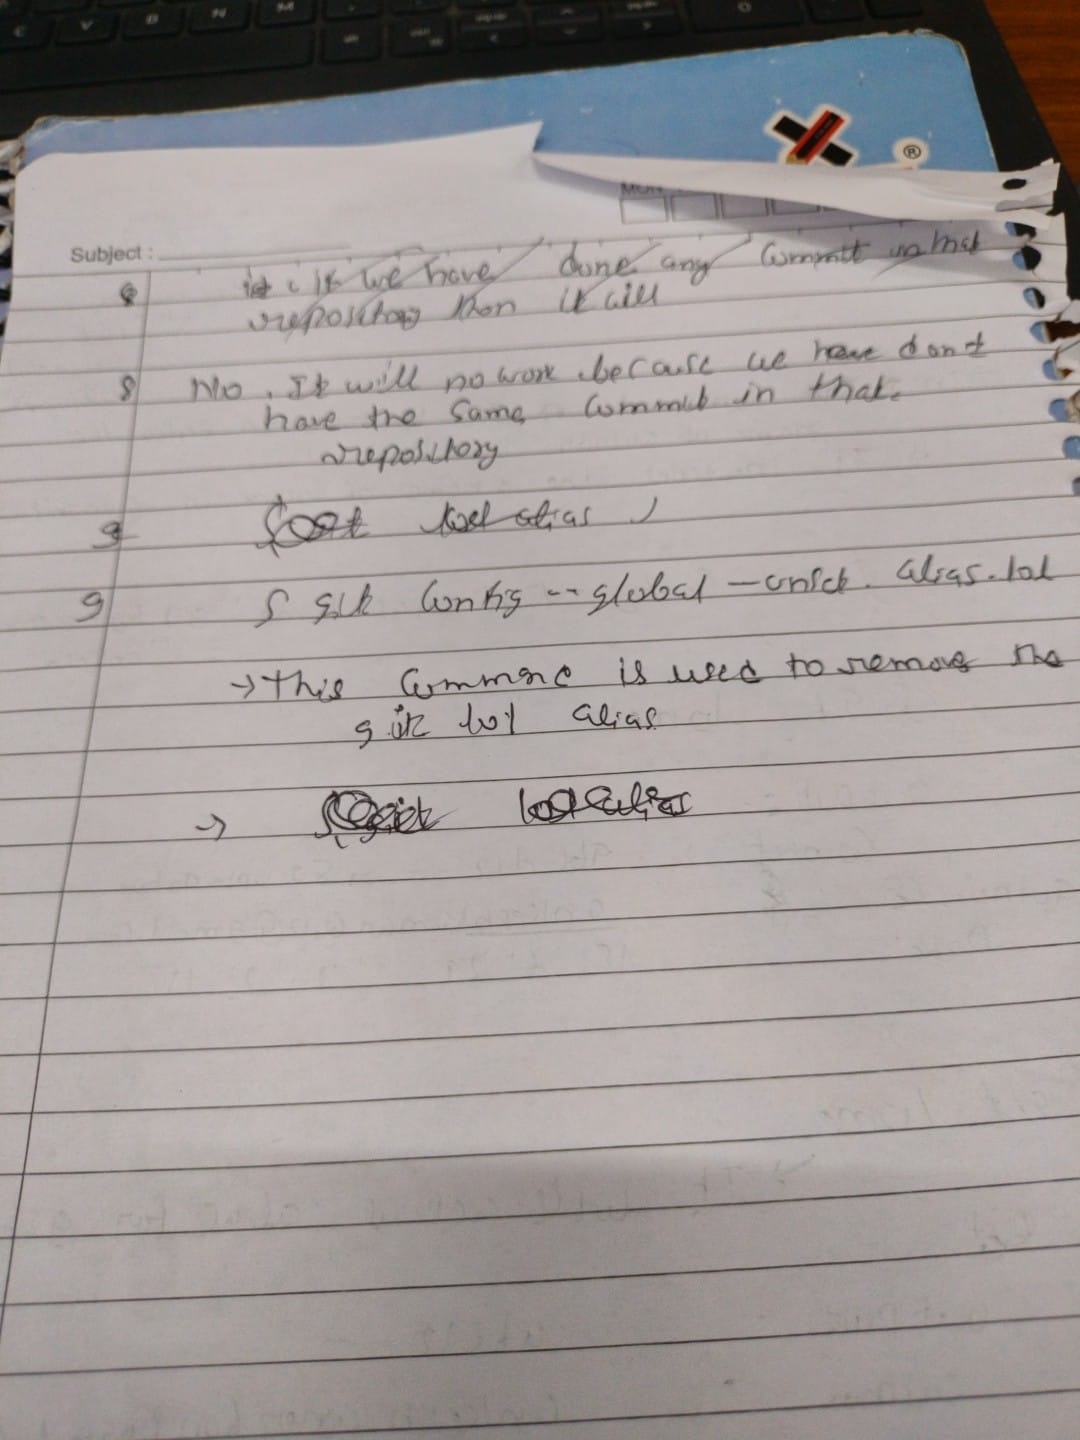 Subject :
8 it if we have done any Commit in that
repository then it will
8 No . It will no work because we have dont
have the same Commit in that.
repository
9 alias
9 $ git Config -- global - unset . alias . lol
→ This Command is used to remove the
git lol alias
→ lol alias
®